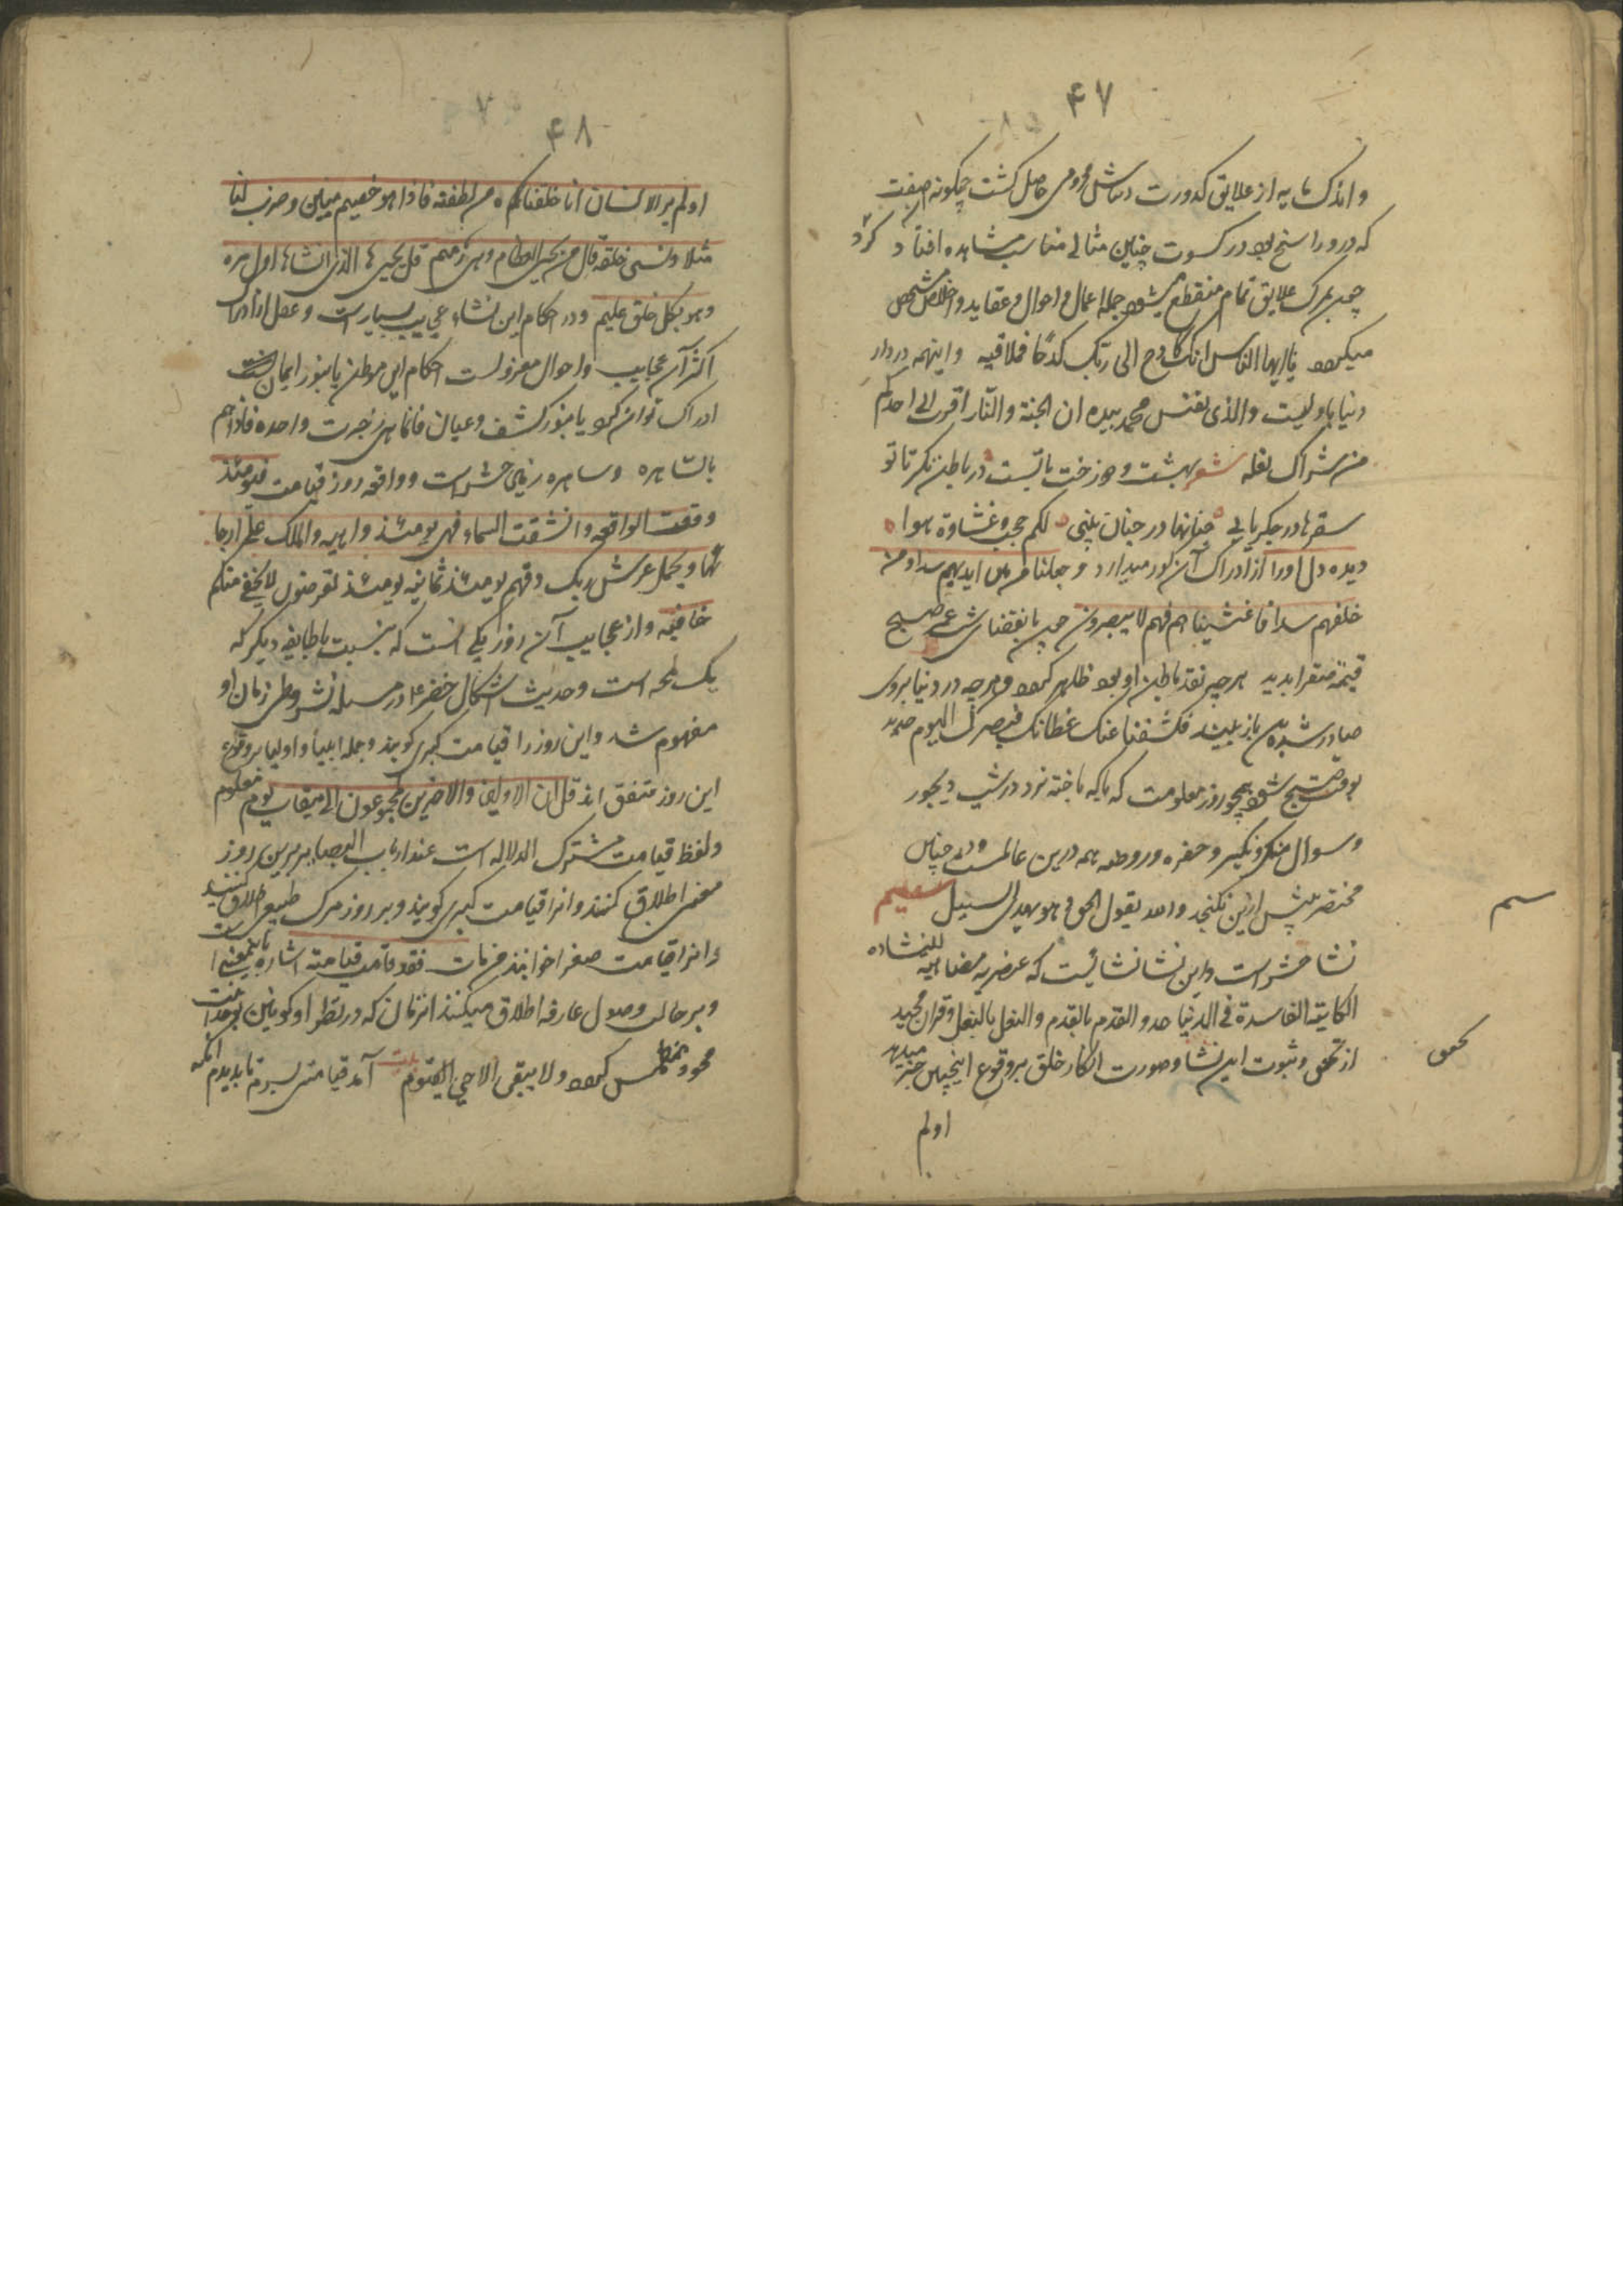 ۴۷
و اندک مایه از علایق کدورت حاصل کشت چکونه صفت
که درو راسخ بود در کسوت چنین مثالی مناسب مشاهده افتاد کرد
چون بمرک علایق تمام منقطع میشود جمله اعمال و احوال و عقاید و اخلاق مشخص
میکردد یا ایها الناس انک کادح الی ربک کدحا فملاقیه و اینهمه در دار
دنیا با ولیست والذی نفس محمد بیده ان الجنة والنار اقرب الی احدکم
من شراک نعله شعر بهشت و دوزخت باتست در باطن نکر تا تو
سقرها در جکر یابی جنانها در جنان بینی لکم حجب و غشاوة هوا
دیده دل او را از ادراک آن کور میدارد و جعلنا من بین ایدیهم سدا و من
خلفهم سدا فاغشیناهم فهم لا یبصرون چون بانقضای شب عمر صبح
قیمة صغرا بدید هر چیز نقد باطن او بود ظاهر کردد و هرچه در دنیا بروی
صادر شده بود باز بیند فکشفنا عنک غطائک فبصرک الیوم حدید
بوقت صبح شود همچو روز معلومت که با که باخته نرد در شب دیجور
و سوال منکر و نکیر و حفره و روضه همه درین عالمست و درین چنین
مختصر بیش ازین نکنجد والله یقول الحق و هو یهدی السبیل
نشا حشر است و این نشا نشائیست که عنصریه مضاهیه للنشاءه
الکاینة الفاسدة فی الدنیا حذو القدم بالقدم والنعل بالنعل و قران مجید
از تحقق و ثبوت این نشا و صورت انکار خلق بر وقوع اینچنین خبر میدهد
تحقق
اولم
۴۸
اولم یر الانسان انا خلقناکم من نطفة فاذا هو خصیم مبین و ضرب لنا
مثلا و نسی خلقه قال من یحیی العظام و هی رمیم قل یحییها الذی انشاها اول مره
و هو بکل خلق علیم و در احکام این نشاء عجایب بسیار است و عقل از ادراک
اکثر آن عجایب و احوال معزولست احکام این موطن یا بنور ایمان
ادراک توان کرد یا بنور کشف و عیان فانما هی زجرت واحده فاذا هم
بالساهره و ساهره زمین حشر است و واقعه روز قیامت فیومئذ
وقعت الواقعه و انشقت السماء فهی یومئذ واهیه والملک علی ارجا
ئها و یحمل عرش ربک فوقهم یومئذ ثمانیه یومئذ تعرضون لا یخفی منکم
خافیه و از عجایب آن روز یکی انست که بنسبت با طایفه دیکر که
یک لمحه است و حدیث اشکال خضر در مسله نشر و طی زمان او
مفهوم شد و این روز را قیامت کبری کویند و جمله انبیأ و اولیا بر وقوع
این روز متفق اند قل ان الاولین والاخرین لمجموعون الی میقات یوم معلوم
و لفظ قیامت مشترک الدلاله است عند ارباب البصایر برین روز
معین اطلاق کنند و انرا قیامت کبری کویند و بر روز مرک طبیعی اطلاق کنند
و انرا قیامت صغرا خوانند من مات فقد قامت قیامته اشاره باینمعنی است
و بر حالت وصول عارف اطلاق میکنند ان زمان که در نظر او کونین بوحدانیت
محو و منطمس کردد و لا یبقی الا الحی القیوم بیت آمد قیامتی بسرم تا بدیدم انکه